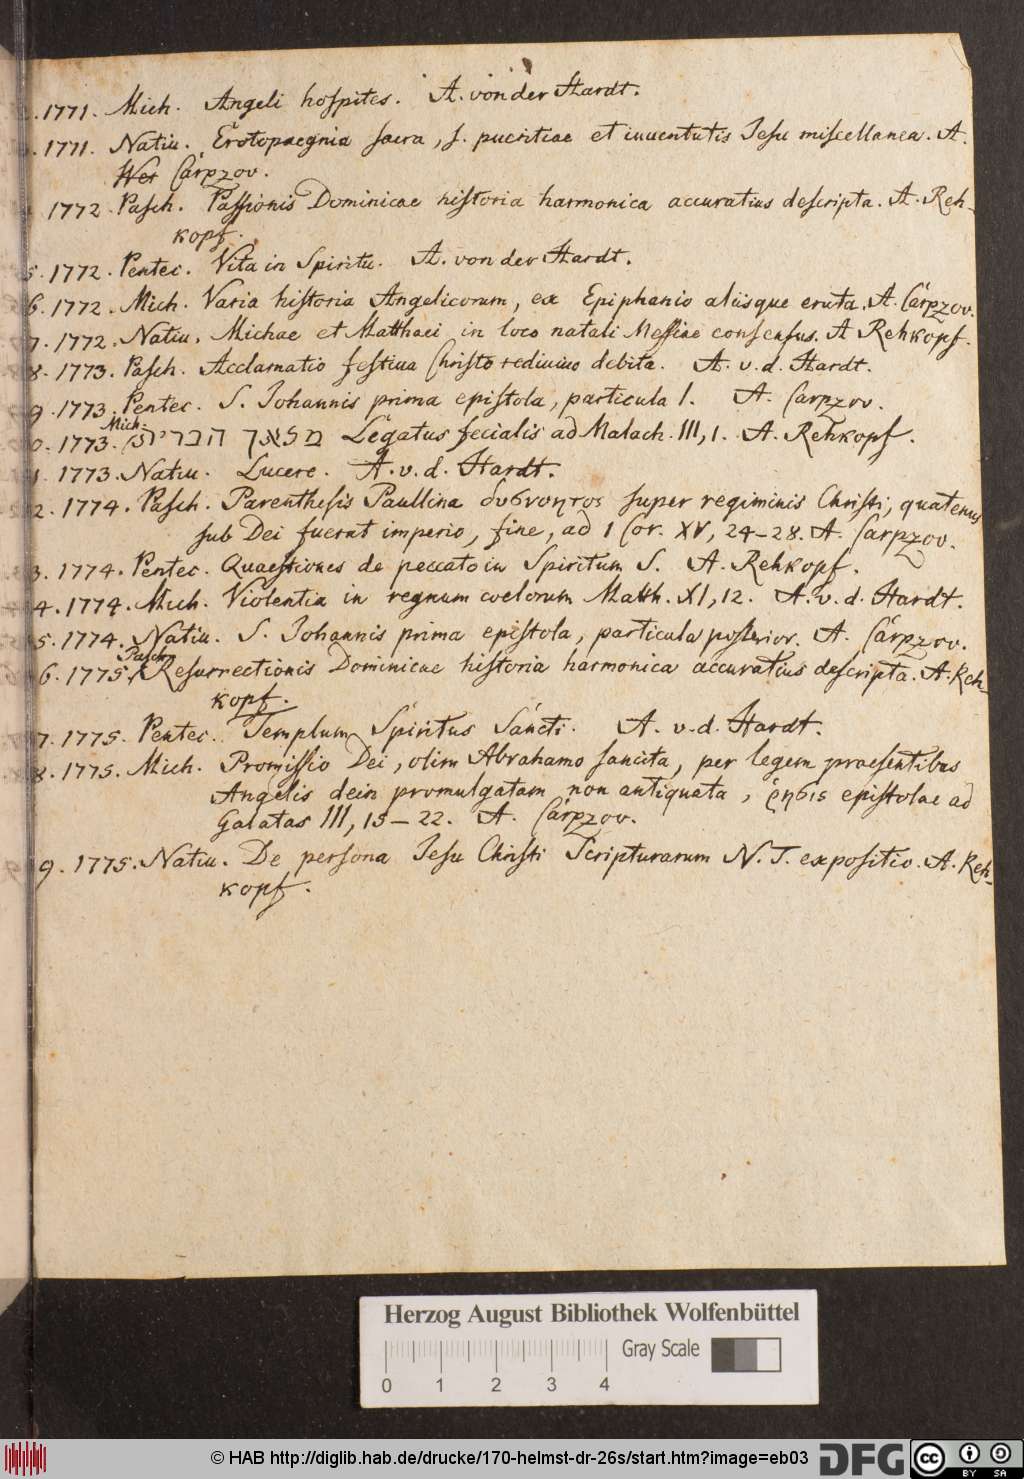 . 1771. Mich. Angeli hospites. A. von der Hardt.
. 1771. Natiu. Erotopaegnia sacra, s. pueritiae et iuuentutis Iesu miscellanea. A.
Carpzov.
1772. Pasch. Passionis Dominicae historia harmonica accuratius descripta. A. Reh-
kopf.
5. 1772. Pentec. Vita in Spiritu. A. von der Hardt.
6. 1772. Mich. Varia historia Angelicorum, ex Epiphanio aliisque eruta. A. Carpzov.
7. 1772. Natiu. Michae et Matthaei in loco natali Messiae consensus. A Rehkopf.
8. 1773. Pasch. Acclamatio festiua Christo rediuiuo debita. A. v. d. Hardt.
9. 1773. Pentec. S. Iohannis prima epistola, particula I. A. Carpzov.
0. 1773. Mich. מלאך הברית Legatus fecialis ad Malach. III, 1. A. Rehkopf.
1. 1773. Natiu. Lucere. A. v. d. Hardt.
2. 1774. Pasch. Parenthesis Paullina δυσνοητος super regiminis Christi, quatenus
sub Dei fuerat imperio, fine, ad 1 Cor. XV, 24-28. A. Carpzov.
3. 1774. Pentec. Quaestiones de peccato in Spiritum S. A. Rehkopf.
4. 1774. Mich. Violentia in regnum coelorum Matth. XI, 12. A. v. d. Hardt.
5. 1774. Natiu. S. Iohannis prima epistola, particula posterior. A. Carpzov.
6. 1775. Pasch. Resurrectionis Dominicae historia harmonica accuratius descripta. A. Reh-
kopf.
7. 1775. Pentec. Templum Spiritus Sancti. A. v. d. Hardt.
8. 1775. Mich. Promissio Dei, olim Abrahamo sancita, per legem praesentibus
Angelis dein promulgatam non antiquata, ῥησις epistolae ad
Galatas III, 15-22. A. Carpzov.
9. 1775. Natiu. De persona Iesu Christi Scripturarum N. T. expositio. A. Reh-
kopf.
Herzog August Bibliothek Wolfenbüttel
Gray Scale
0 1 2 3 4
© HAB http://diglib.hab.de/drucke/170-helmst-dr-26s/start.htm?image=eb03 DFG cc BY SA